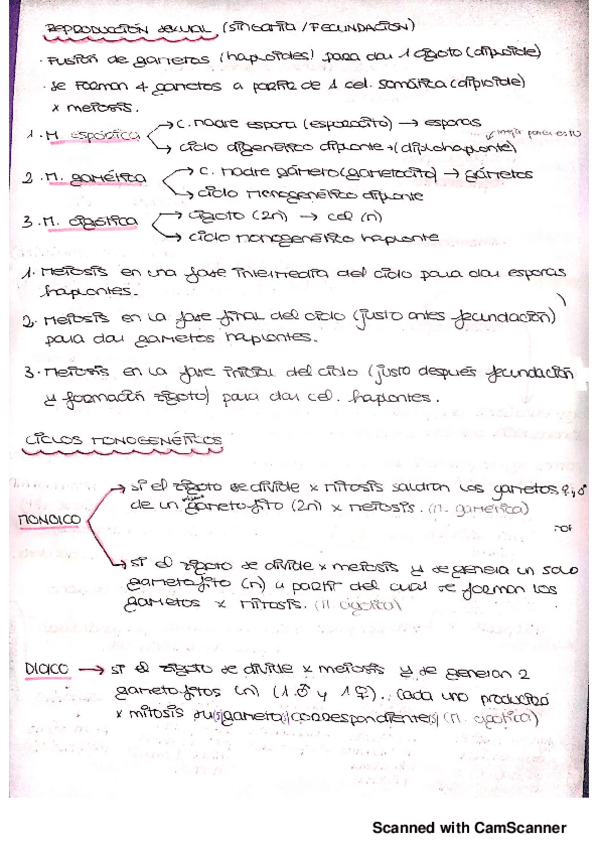 REPRODUCCIÓN SEXUAL (SINGAMIA / FECUNDACIÓN)
· Fusión de gametos (haploides) para dar 1 cigoto (diploide)
· Se forman 4 gametos a partir de 1 cel. somática (diploide)
x meiosis.
1. M. espórica → c. madre espora (esporocito) → esporas
→ ciclo digenético diplonte → (diplohaplonte)
2. M. gamética → c. madre gámeto (gametocito) → gámetos
→ ciclo monogenético diplonte
3. M. cigótica → cigoto (2n) → cel (n)
→ ciclo monogenético haplonte
1. Meiosis en una fase intermedia del ciclo para dar esporas
haplontes.
2. Meiosis en la fase final del ciclo (justo antes fecundación)
para dar gametos haplontes.
3. Meiosis en la fase inicial del ciclo (justo después fecundación
y formación zigoto) para dar cel. haplontes.
CICLOS MONOGENÉTICOS
MONOICO
→ si el zigoto se divide x mitosis saldrán los gametos ♀ y ♂
de un gametofito (2n) x meiosis. (M. gamética)
→ si el zigoto se divide x meiosis y se genera un solo
gametofito (n) a partir del cual se forman los
gametos x mitosis. (M cigótica)
DIOICO → si el zigoto se divide x meiosis y se generan 2
gametofitos (n) (1 ♂ y 1 ♀). Cada uno producirá
x mitosis su(s) gameto(s) correspondiente(s) (M. cigótica)
Scanned with CamScanner